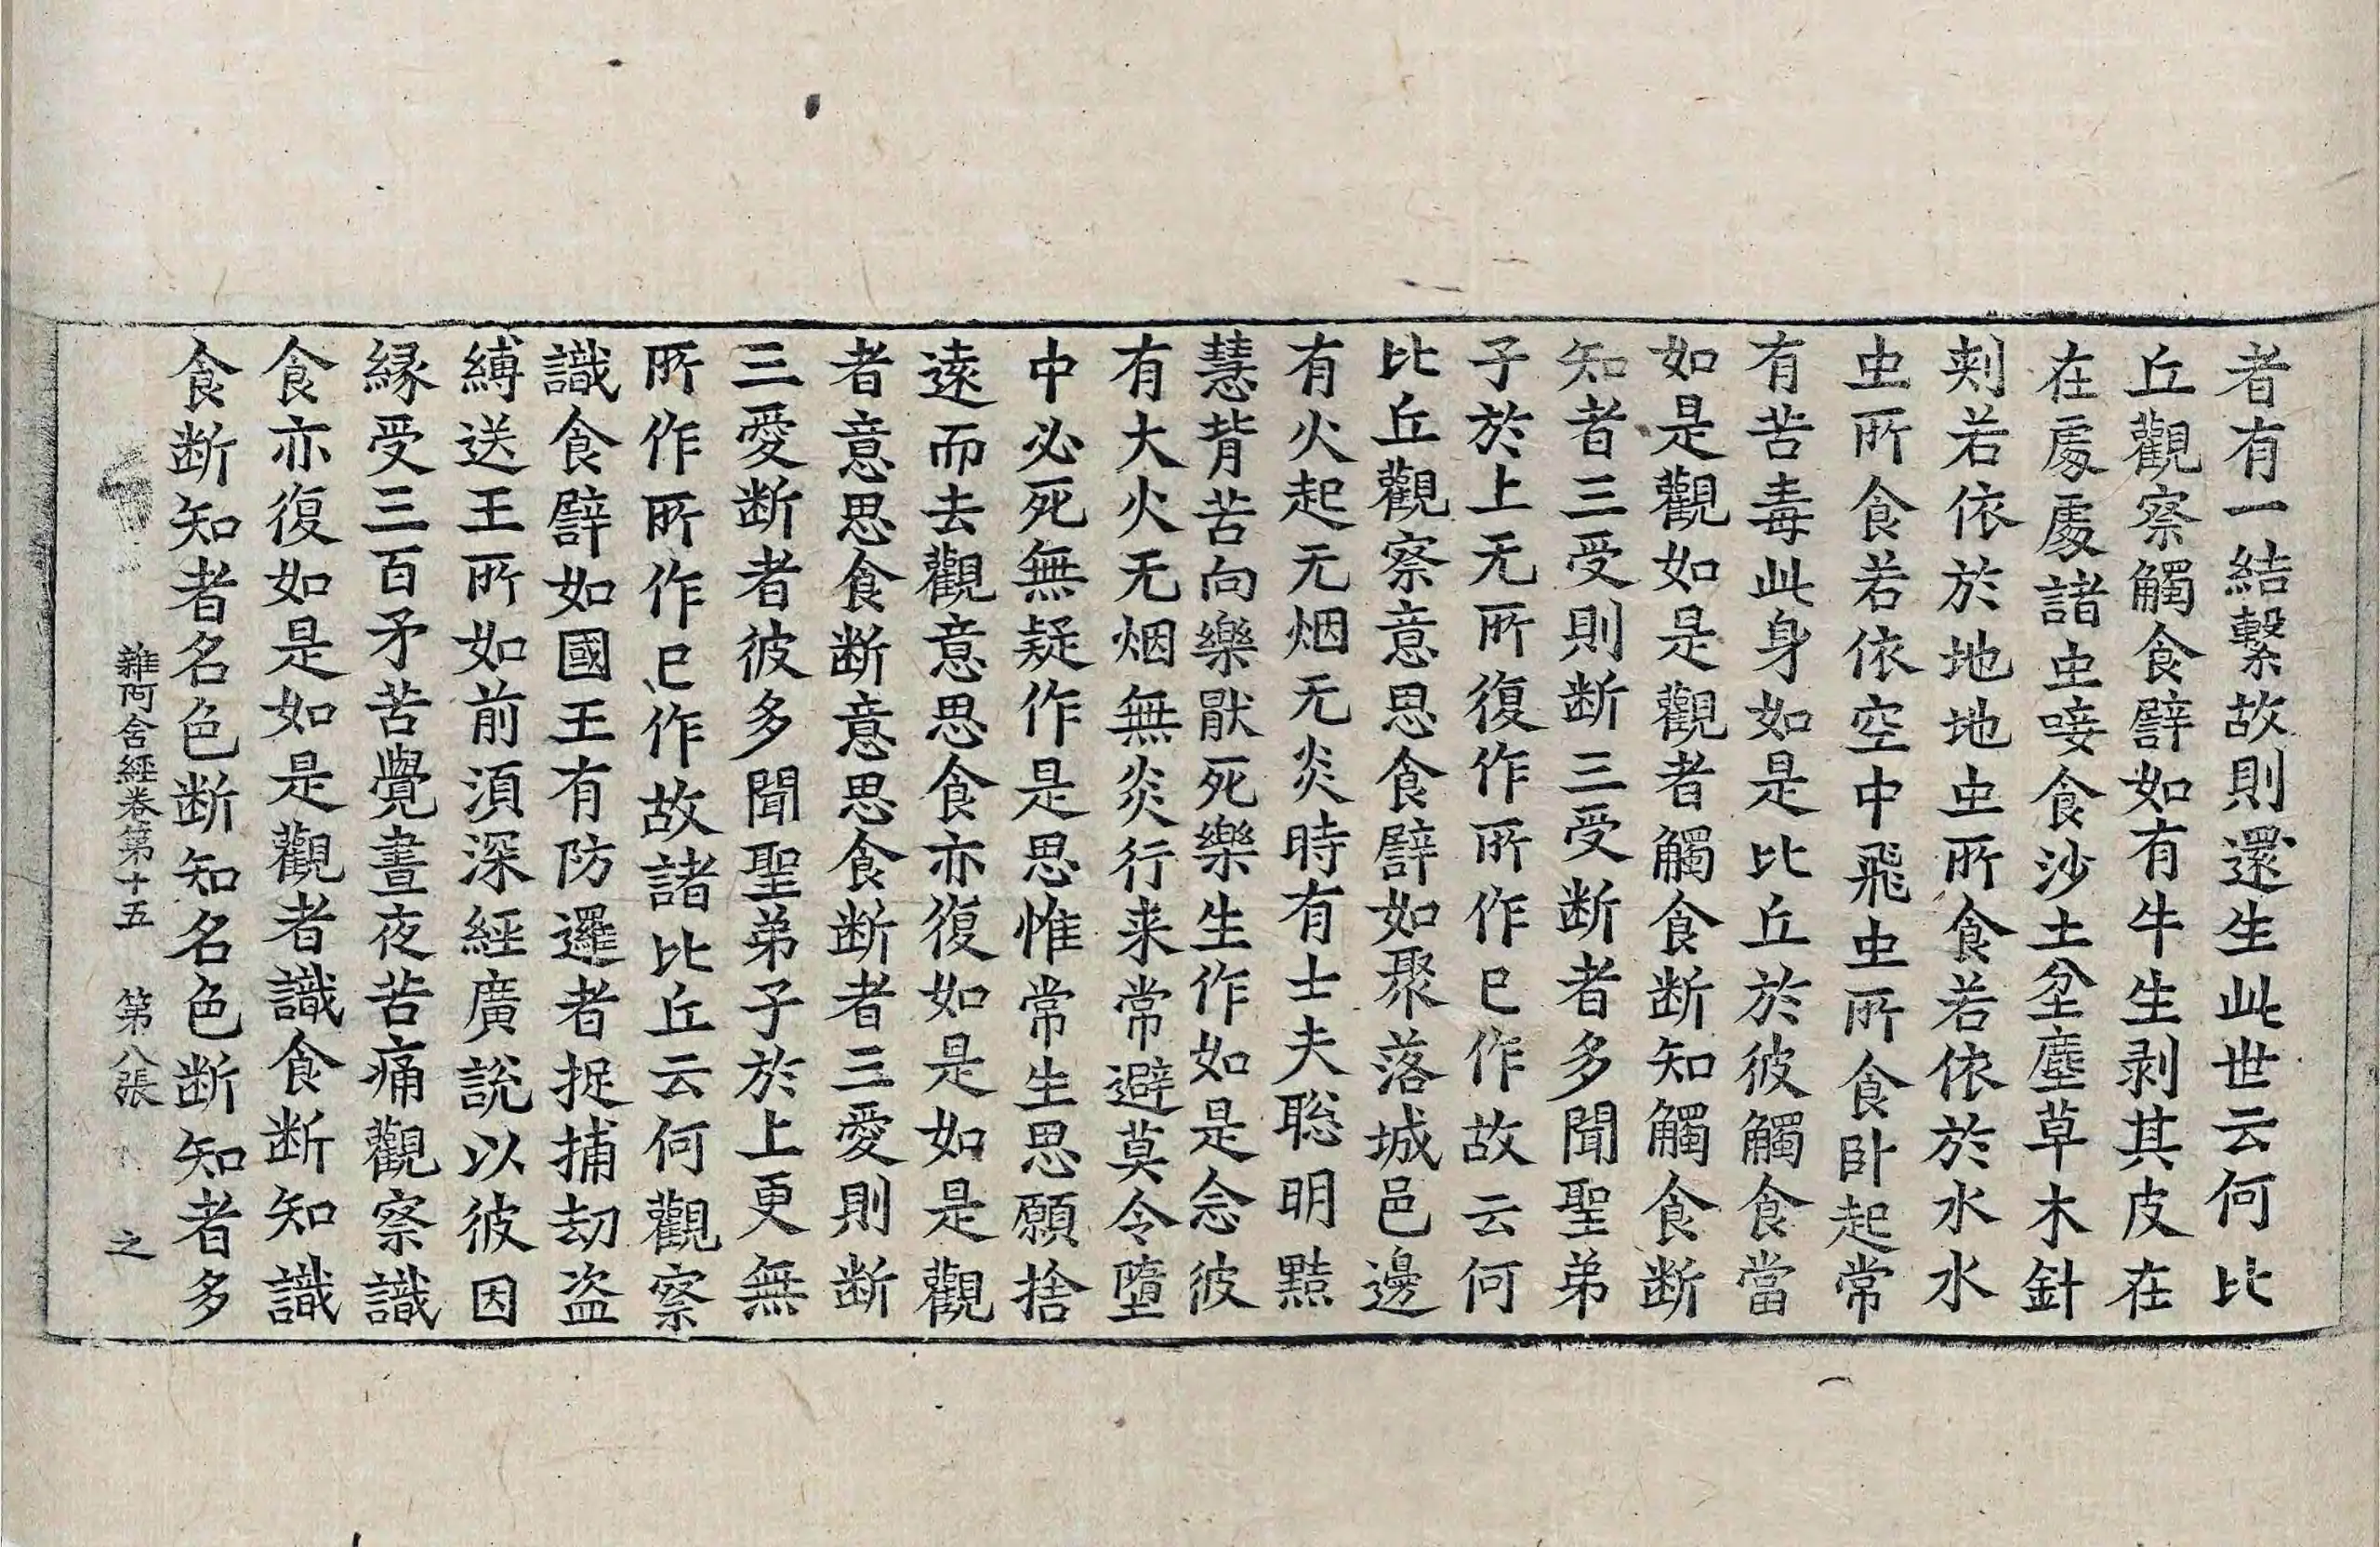 者有一結繫故則還生此世云何比
丘觀察觸食譬如有牛生剥其皮在
在處處諸虫唼食沙土坌塵草木針
刾若依於地地虫所食若依於水水
虫所食若依空中飛虫所食卧起常
有苦毒此身如是比丘於彼觸食當
如是觀如是觀者觸食断知觸食断
知者三受則断三受断者多聞聖弟
子於上无所復作所作已作故云何
比丘觀察意思食譬如聚落城邑邊
有火起无烟无炎時有士夫聡明黠
慧背苦向樂猒死樂生作如是念彼
有大火无烟無炎行来常避莫令墮
中必死無疑作是思惟常生思願捨
遠而去觀意思食亦復如是如是觀
者意思食断意思食断者三愛則断
三愛断者彼多聞聖弟子於上更無
所作所作已作故諸比丘云何觀察
識食譬如國王有防邏者捉捕刧盗
縛送王所如前湏深經廣說以彼因
縁受三百矛苦覺晝夜苦痛觀察識
食亦復如是如是觀者識食断知識
食断知者名色断知名色断知者多
雜阿含經卷第十五 第八張 之